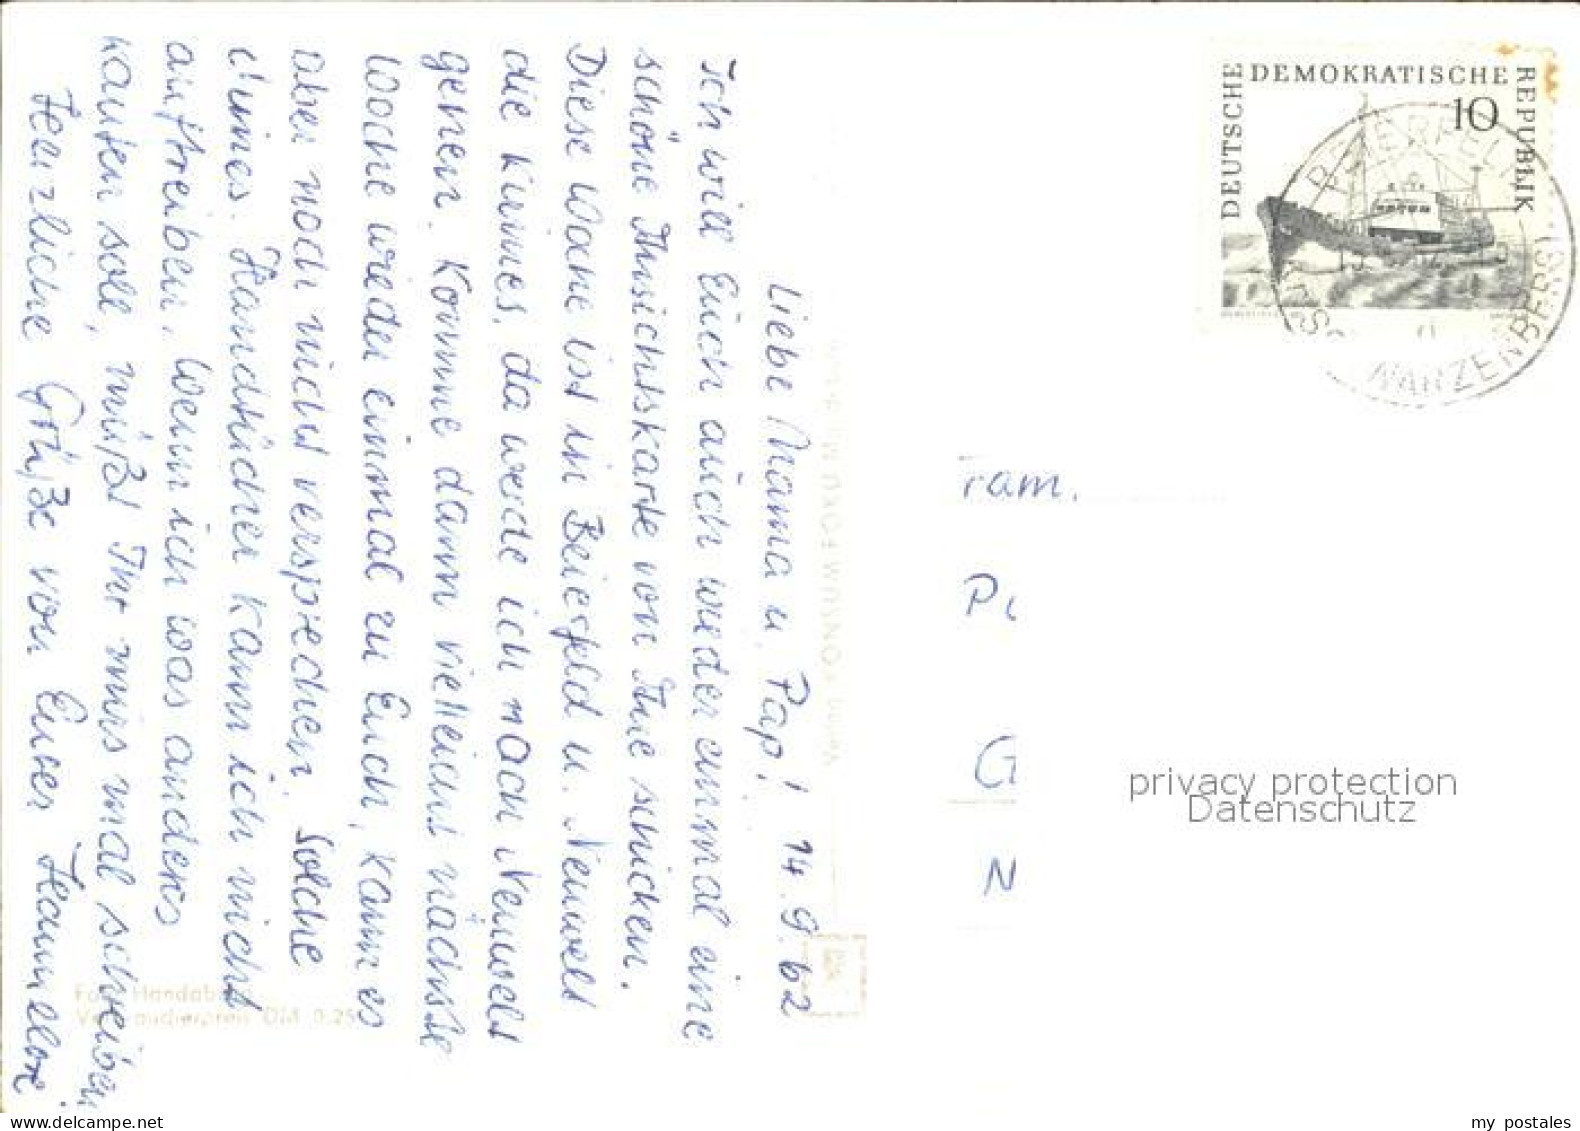 Liebe Mama u. Pap! 14.9.62
Ich will Euch auch wieder einmal eine
schöne Ansichtskarte von Aue schicken.
Diese Woche ist in Beierfeld u. Neuwelt
die Kirmes, da werde ich nach Neuwelt
gehen. Komme dann vielleicht nächste
Woche wieder einmal zu Euch, kann es
aber noch nicht versprechen. Solche
dünnes Handtücher kann ich nicht
auftreiben. Wenn ich was anders
kaufen soll, müßt Ihr mirs mal schreiben.
Herzliche Grüße von Euer Hannelore
DEUTSCHE DEMOKRATISCHE REPUBLIK
10
BEIERFELD
SCHWARZENBERG
ram.
P
G
N
privacy protection
Datenschutz
DM 0.25
my postales